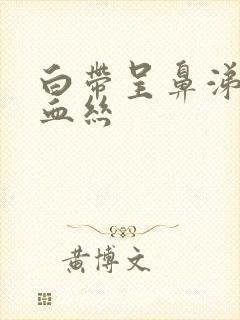 白帶呈鼻涕
血絲
黄博文